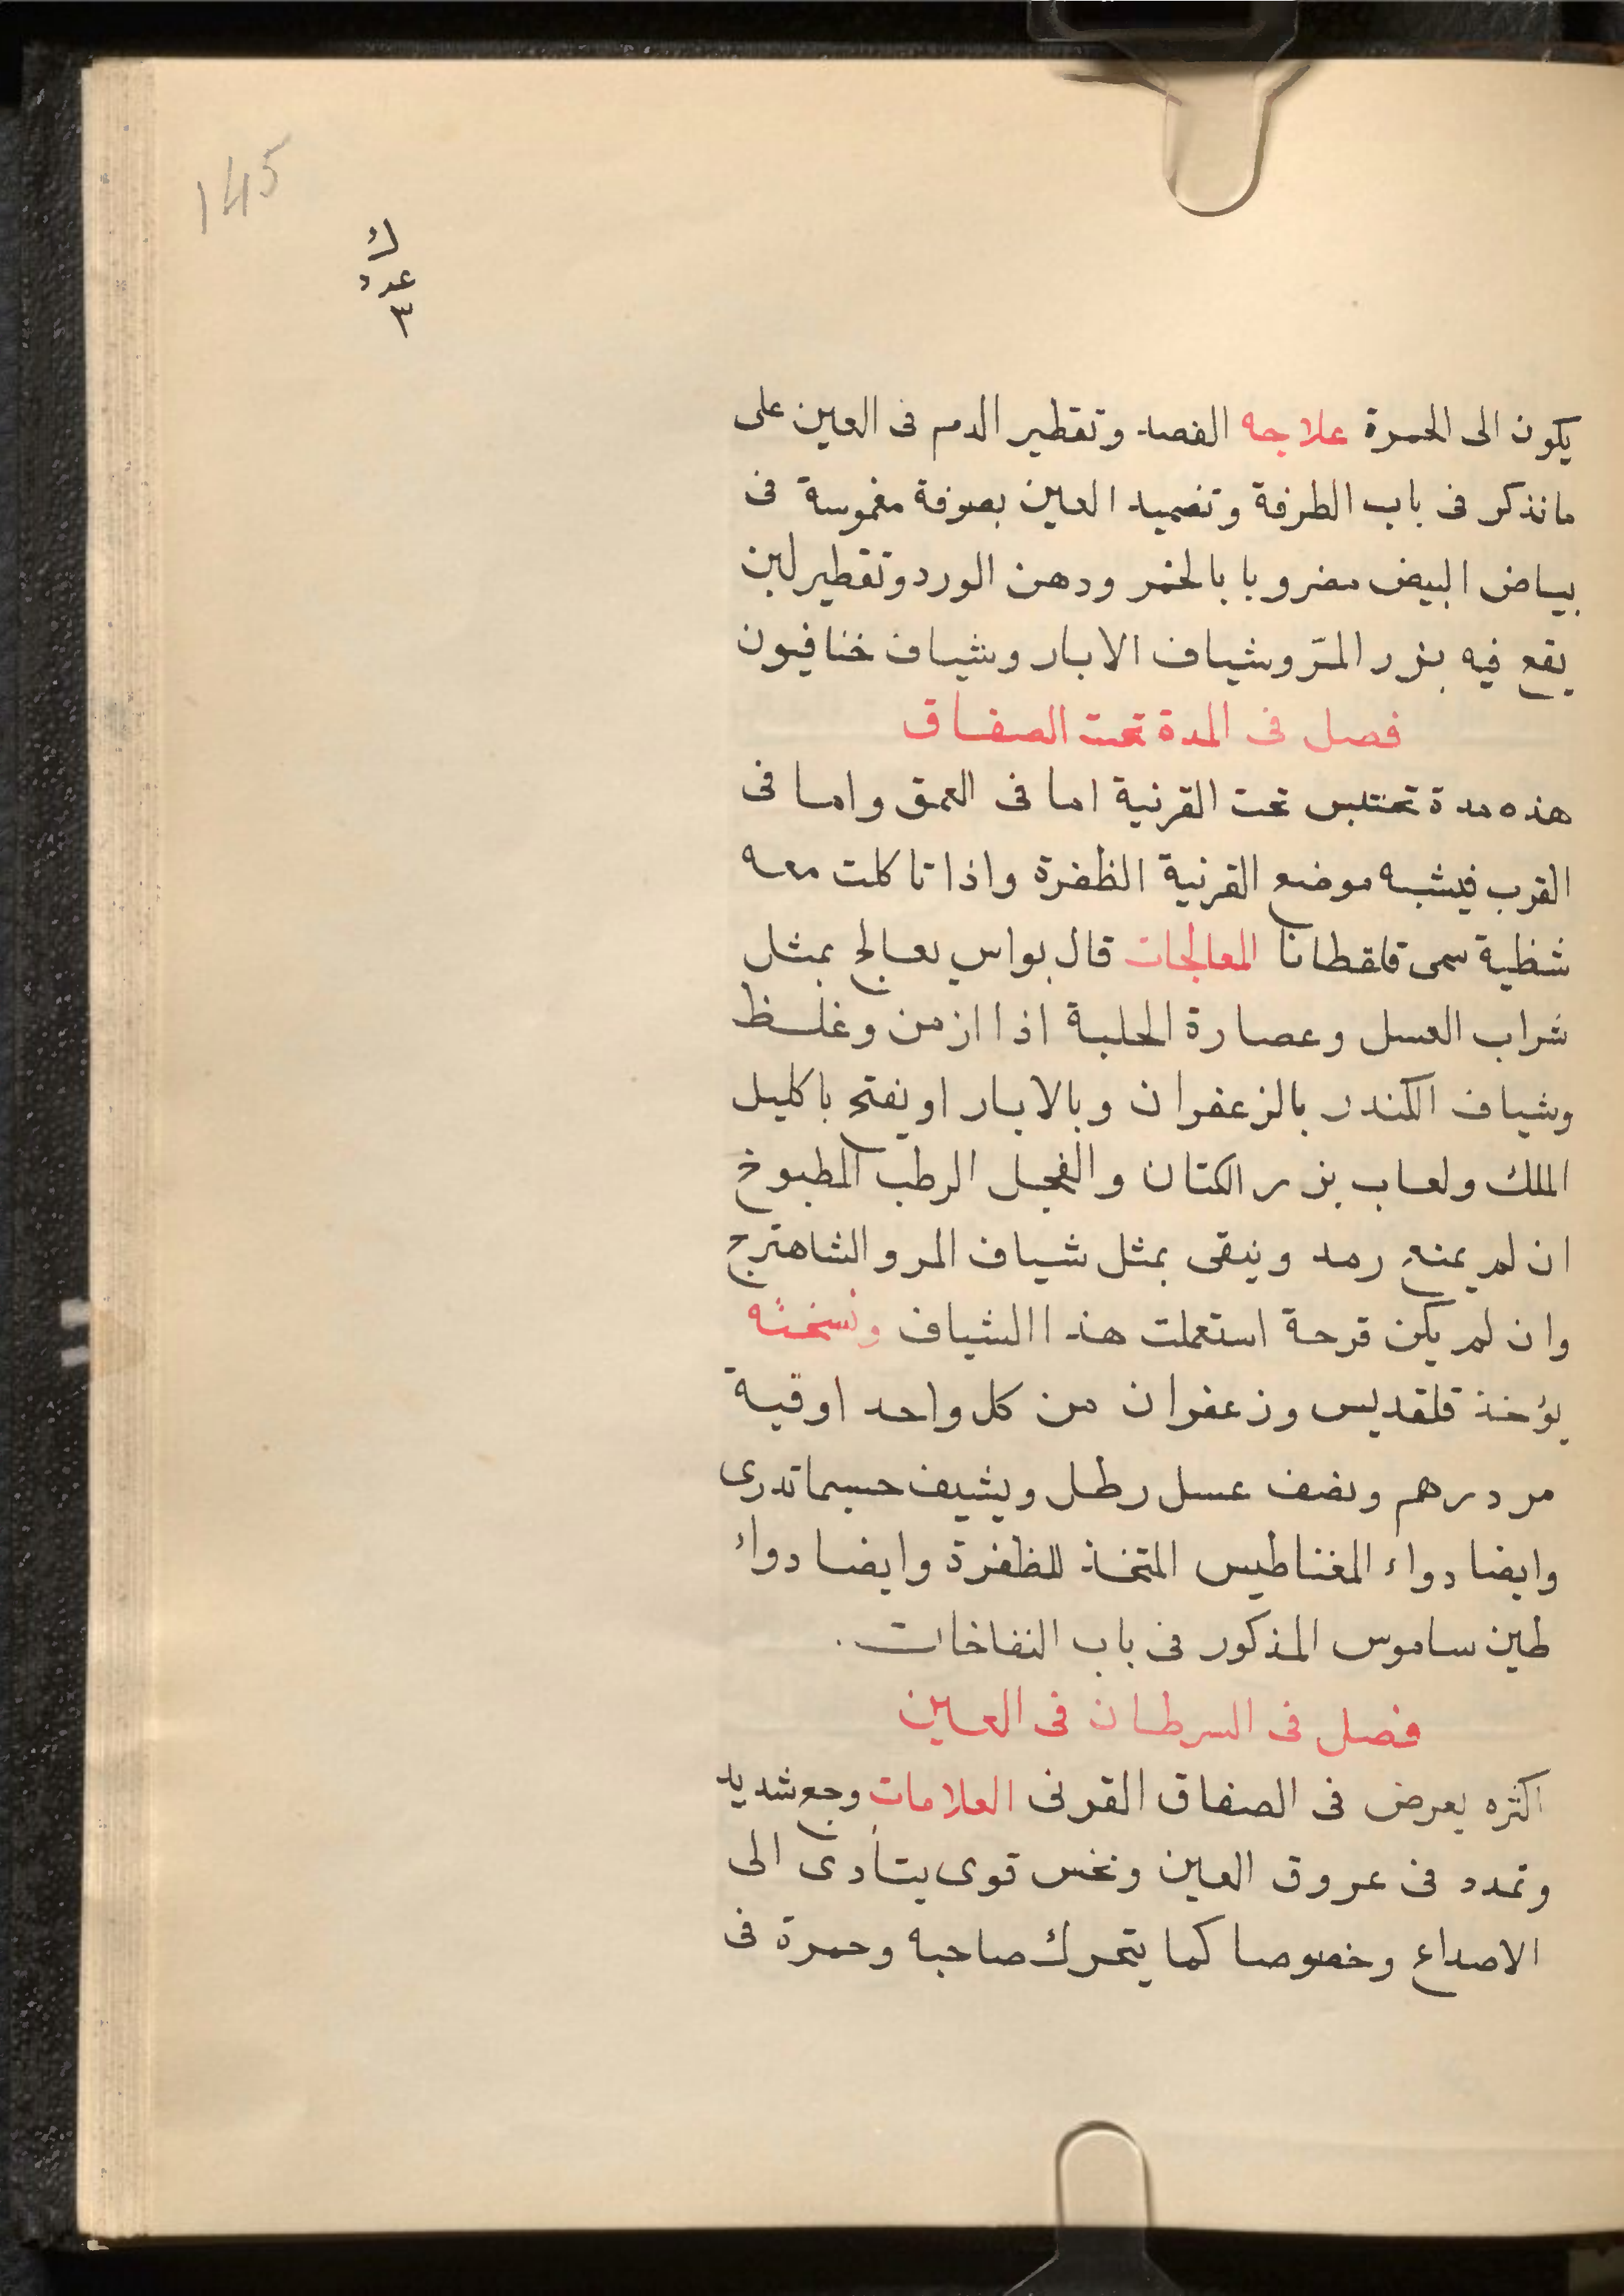 145
ك
عدد
٣
يكون الى الحمرة علاجه الفصد وتقطير الدم فى العين على
ما نذكر فى باب الطرفة وتضميد العين بصوفة مغموسة فى
بياض البيض مضروبا بالخمر ودهن الورد وتقطير لبن
يقع فيه بزر المرّ وشياف الابار وشياف خنافيون
فصل فى المدة تحت الصفاق
هذه مدة تحتبس تحت القرنية اما فى العمق واما فى
القرب فيشبه موضع القرنية الظفرة واذا تاكلت معه
شظية سمى قلقطانا المعالجات قال بولس يعالج بمثل
شراب العسل وعصارة الحلبة اذا ازمن وغلظ
وشياف الكندر بالزعفران وبالابار او يفتح باكليل
الملك ولعاب بزر الكتان والفجل الرطب المطبوخ
ان لم يمنع رمد وينقى بمثل شياف المر والشاهترج
وان لم يكن قرحة استعملت هذا الشياف ونسخته
يؤخذ قلقديس وزعفران من كل واحد اوقية
مر درهم ونصف عسل رطل ويشيف حسبما تدرى
وايضا دواء المغناطيس المتخذ للظفرة وايضا دواء
طين ساموس المذكور فى باب النفاخات .
فصل فى السرطان فى العين
اكثره يعرض فى الصفاق القرنى العلامات وجع شديد
وتمدد فى عروق العين ونخس قوى يتأدى الى
الاصداغ وخصوصا كما يتحرك صاحبه وحمرة فى